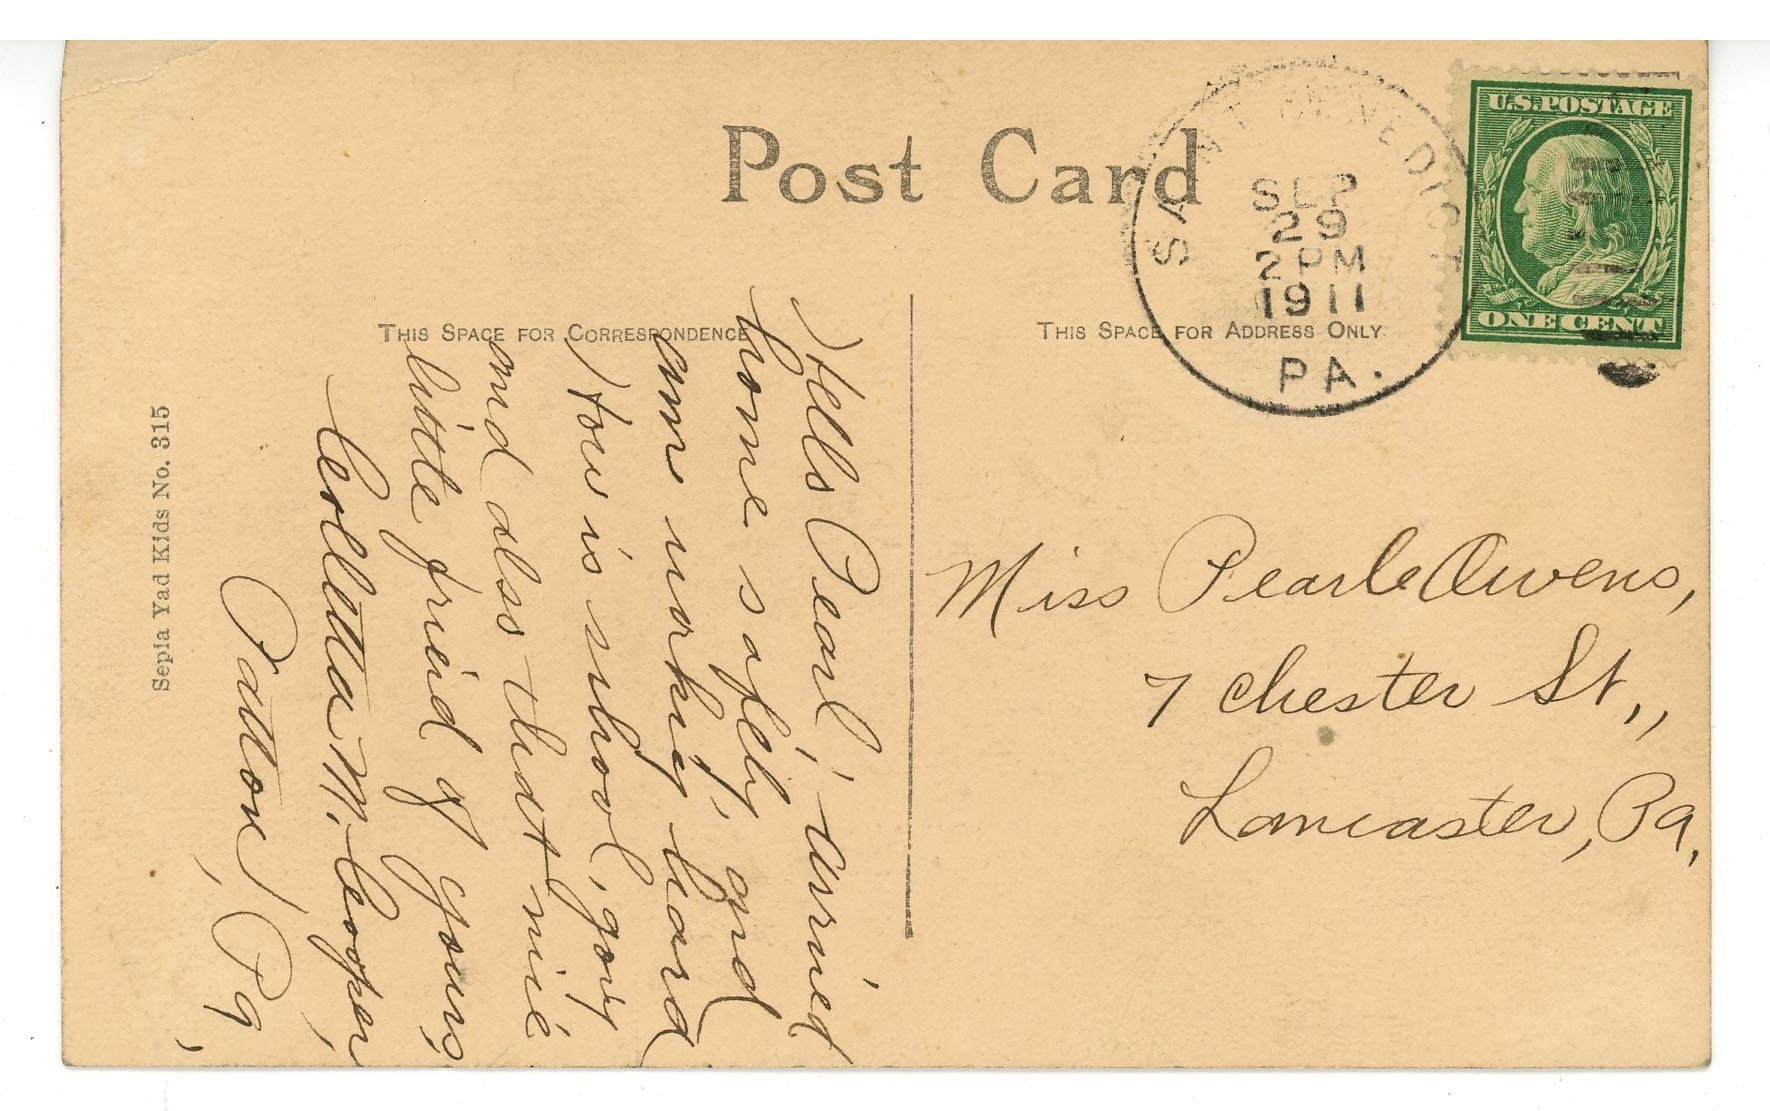 Post Card
THIS SPACE FOR CORRESPONDENCE
THIS SPACE FOR ADDRESS ONLY.
SAINT BENEDICT
SEP
29
2 PM
1911
PA.
U.S. POSTAGE
ONE CENT
Sepia Yad Kids No. 315
Hello Pearl, arrived
home safely, and
am workig hard
How is school, goig
and also that nice
little freind of yours,
Corletta M. Cooper,
Patton, Pa,
Miss Pearle Owens,
7 Chester St.,,
Lancaster, Pa,